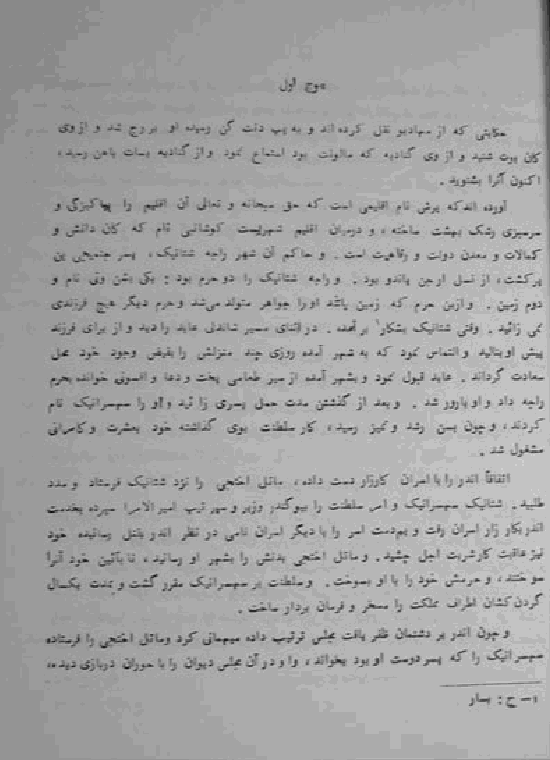 موج اول
حکایتی که از مهادیو نقل کرده‌اند و به پپ دنت گن رسیده او بررچ شد و ازوی
کان بوت شنید و از وی گنادیه که مالونت بود استماع نمود و از گنادیه بسات باهن رسید،
اکنون آنرا بشنوید .
آورده اندکه برش نام اقلیمی است که حق سبحانه و تعالی آن اقلیم را بپاکیزگی و
سرسبزی رشک بهشت ساخته، و درمیان اقلیم شهریست کوشانبی نام که کان دانش و
کمالات و معدن دولت و رفاهیت است . و حاکم آن شهر راجه شتانیک، پسر جنمیجی بن
پرکشت، از نسل ارجن پاندو بود . و راجه شتانیک را دو حرم بود : یکی بشن وتی نام و
دوم زمین . و ازین حرم که زمین باشد او را جواهر متولد می‌شد و حرم دیگر هیچ فرزندی
نمی زائید . وقتی شتانیک بشکار۱ برآمده . در اثنای مسیر شاندلی عابد را دید و از برای فرزند
پیش او بنالید و التماس نمود که به شهر آمده روزی چند منزلش را بفیض وجود خود محل
سعادت گرداند . عابد قبول نمود و بشهر آمده از سیر طعامی پخت و دعا و افسونی خوانده بحرم
راجه داد و او بارور شد . و بعد از گذشتن مدت حمل پسری زائید و او را سهسرانیک نام
کردند، و چون بسن رشد و تمیز رسید، کار سلطنت بوی گذاشته خود بعشرت و کامرانی
مشغول شد .
اتفاقاً اندر را با اسران کارزار دست داده، ماتل اختجی را نزد شتانیک فرستاد و مدد
طلبید . شتانیک سهسرانیک و امر سلطنت را بیوگندر وزیر و سپرتیپ امیرالامرا سپرده بخدمت
اندر بکارزار اسران رفت و یم‌دمت اسر را با دیگر اسران نامی در نظر اندر بقتل رسانیده خود
نیز عاقبت کار شربت اجل چشید . و ماتل اختجی بدنش را بشهر او رسانید، تا بآئین خود آنرا
سوختند، و حرمش خود را با او بسوخت . و سلطنت بر سهسرانیک مقرر گشت و بمدت یکسال
گردن‌کشان اطراف مملکت را مسخر و فرمان بردار ساخت .
و چون اندر بر دشمنان ظفر یافت مجلس ترتیب داده میهمانی کرد و ماتل اختجی را فرستاده
سهسرانیک را که پسر دوست او بود بخواند، و او در آن مجلس دیوان را با حوران در بازی دیده،
۱– ح : بسار